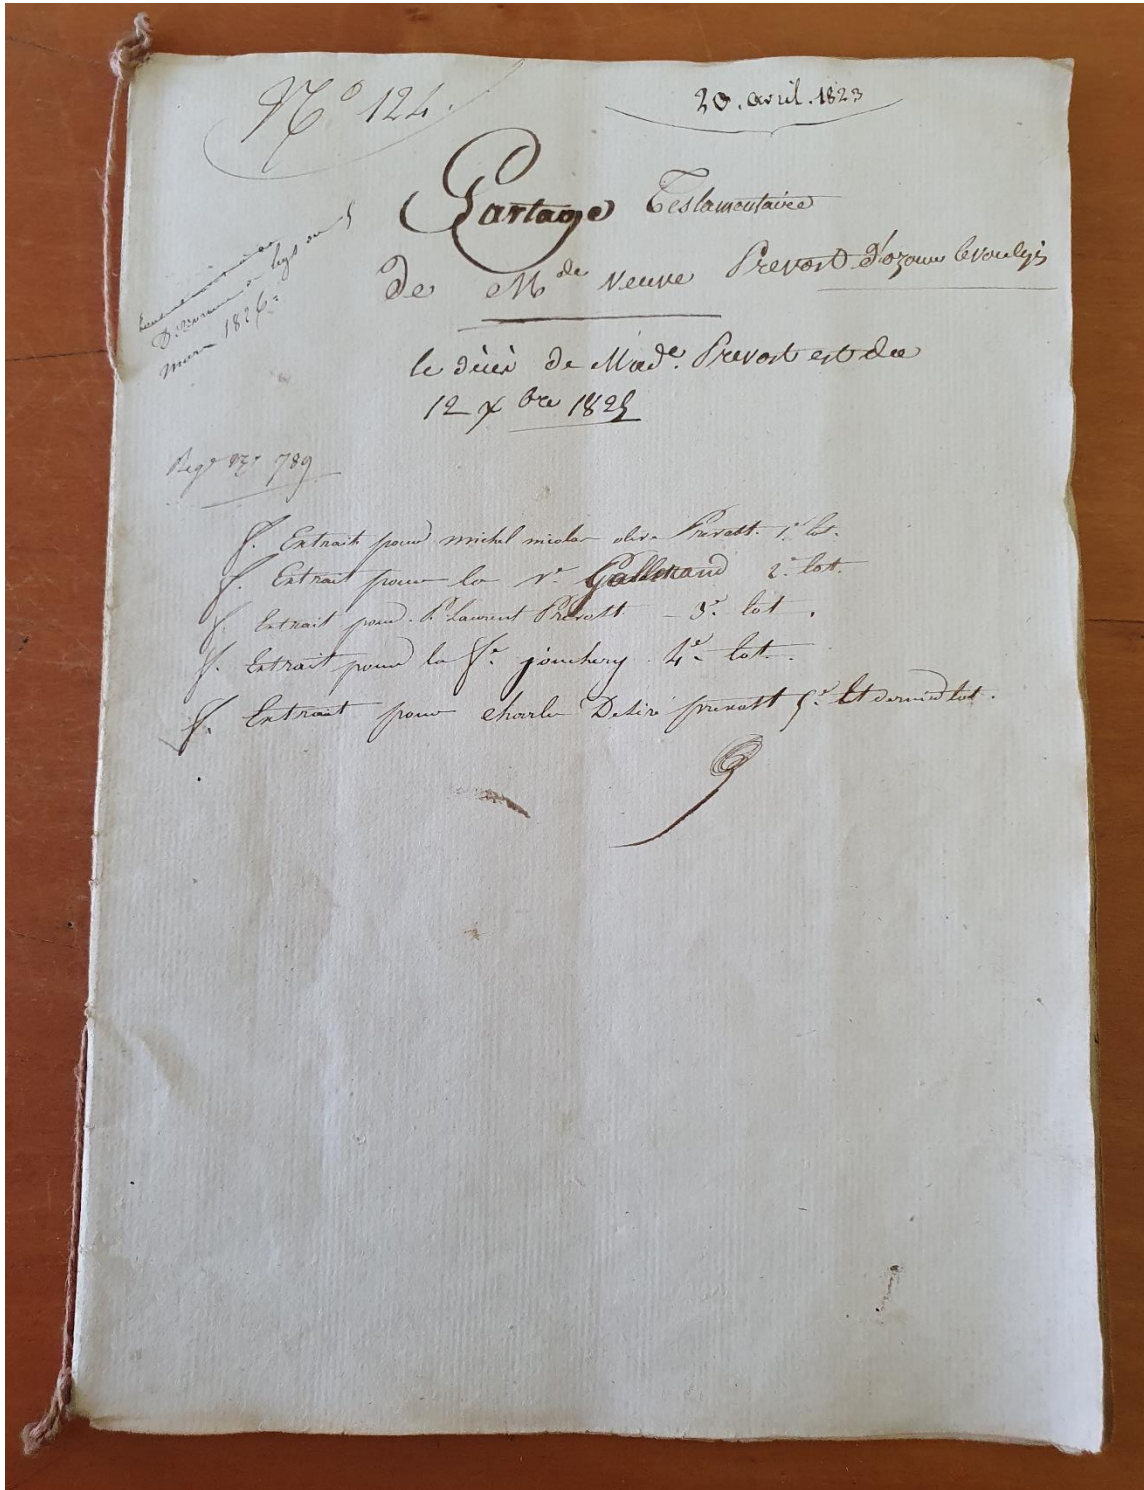 N° 124.
20. avril. 1823
Partage Testamentaire
de Mde veuve Prevost d'ozouer levoulgis
mars 1826
le décès de Made. Prevost est du
12 xbre 1825
Regre No 789
f. Extrait pour michel nicolas Prevost. 1er lot.
f. Extrait pour la ve. Gallerand 2e. lot.
f. Extrait pour. P. Laurent Prevost - 3e. lot.
f. Extrait pour la fe. jouchery 4e. lot.
f. Extrait pour charles Desiré prevost 5e. et dernier lot.